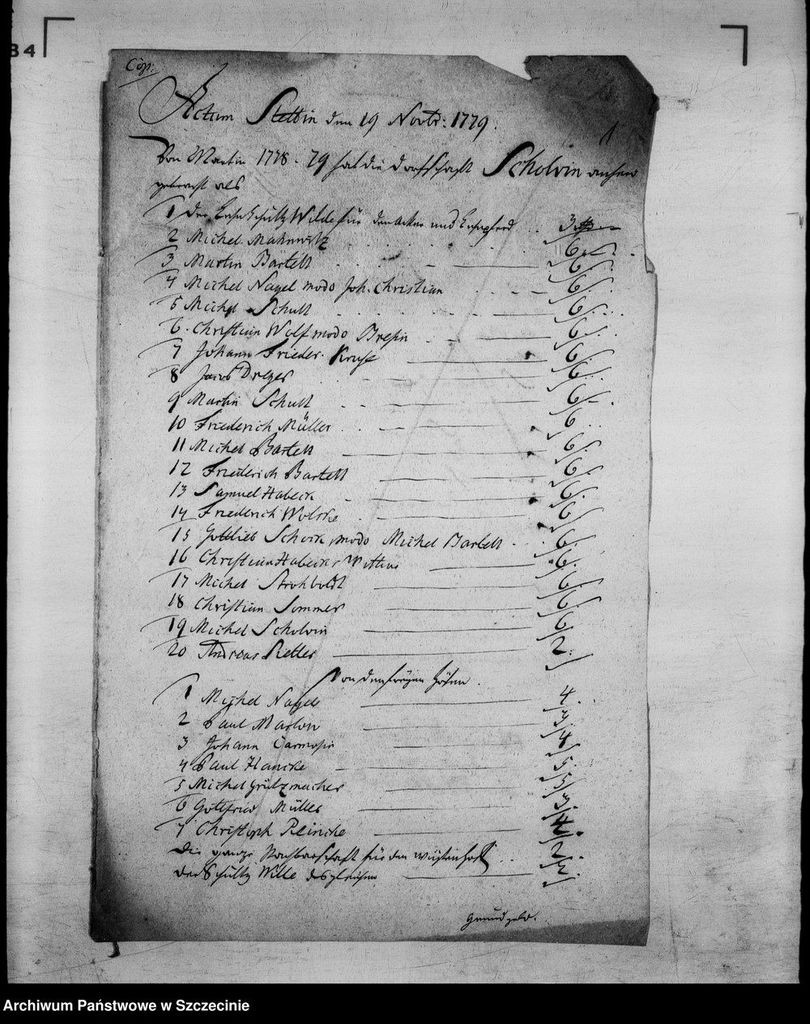 34
Cop:
Actum Stettin den 19 Novbr: 1779.
1
Von Martin 1778-79 hat die Dorfschafft Scholvin anhero
gebracht als
1 Der Lehn Schultz Wilde für den Acker und Lehnpferd .. 3
2 Michel Mahnwitz 6
3 Martin Bartelt 6
4 Michel Nagel modo Joh. Christian 6
5 Michel Schult 6
6. Christian Wolf modo Bresin 6
7 Johann Frieder. Kruse 6
8 Jacob Dreger 6
9 Martin Schult 6
10 Friederich Müller 6
11 Michel Bartelt 6
12 Friederich Bartelt 6
13 Samuel Habeck 6
14 Friederich 6
15 Gottlieb modo Michel Bartelt 6
16 Christian Habecks Wittwe 6
17 Michel Strohboldt 6
18 Christian Sommer 6
19 Michel Scholvin 6
20 Andreas Retler 2
Von den freyen Höfen.
1 Michel Nagel 4
2 Paul Marlow 3
3 Johann 4
4 Paul Hancke 5
5 Michel Grützmacher 5
6 Gottfried Müller 3
7 Christoph Reincke 4
Die gantze Nachbarschafft für den wüsten Hoff .. 2
der Schultz Wille desgleichen 2
Grundgeld.
Archiwum Państwowe w Szczecinie